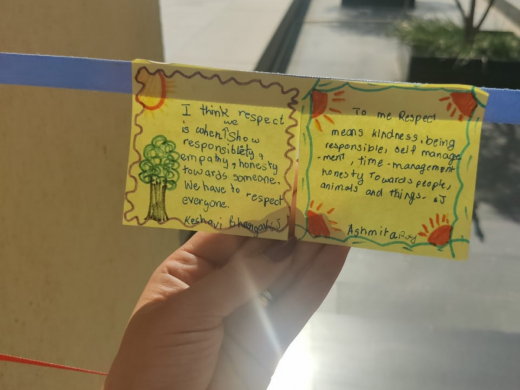 I think respect
we
is when show
responsibility,
empathy, honesty
towards someone.
We have to respect
everyone.
Keshavi
To me Respect
means kindness, being
responsible, self manage
-ment, time-management
honesty towards people,
animals and things.
Ashmita Roy